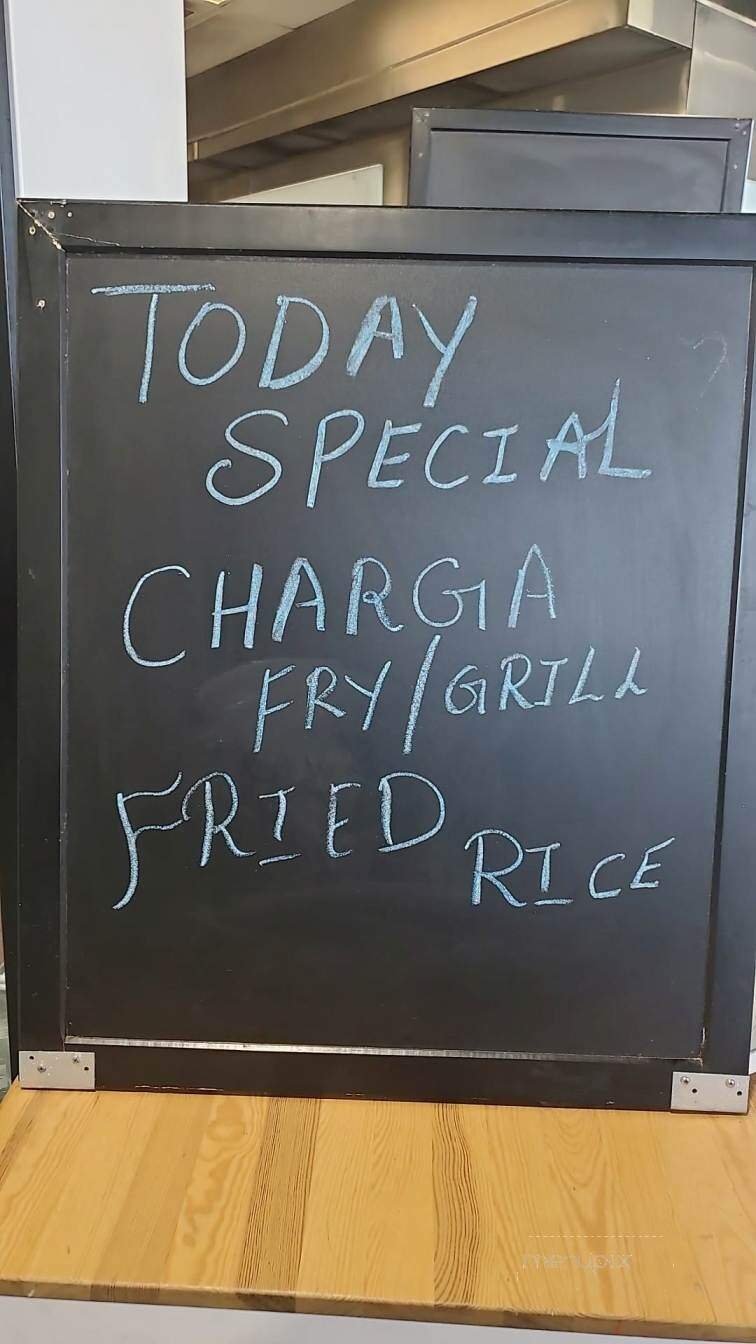 TODAY
SPECIAL
CHARGA
FRY/GRILL
FRIED
RICE
menupix